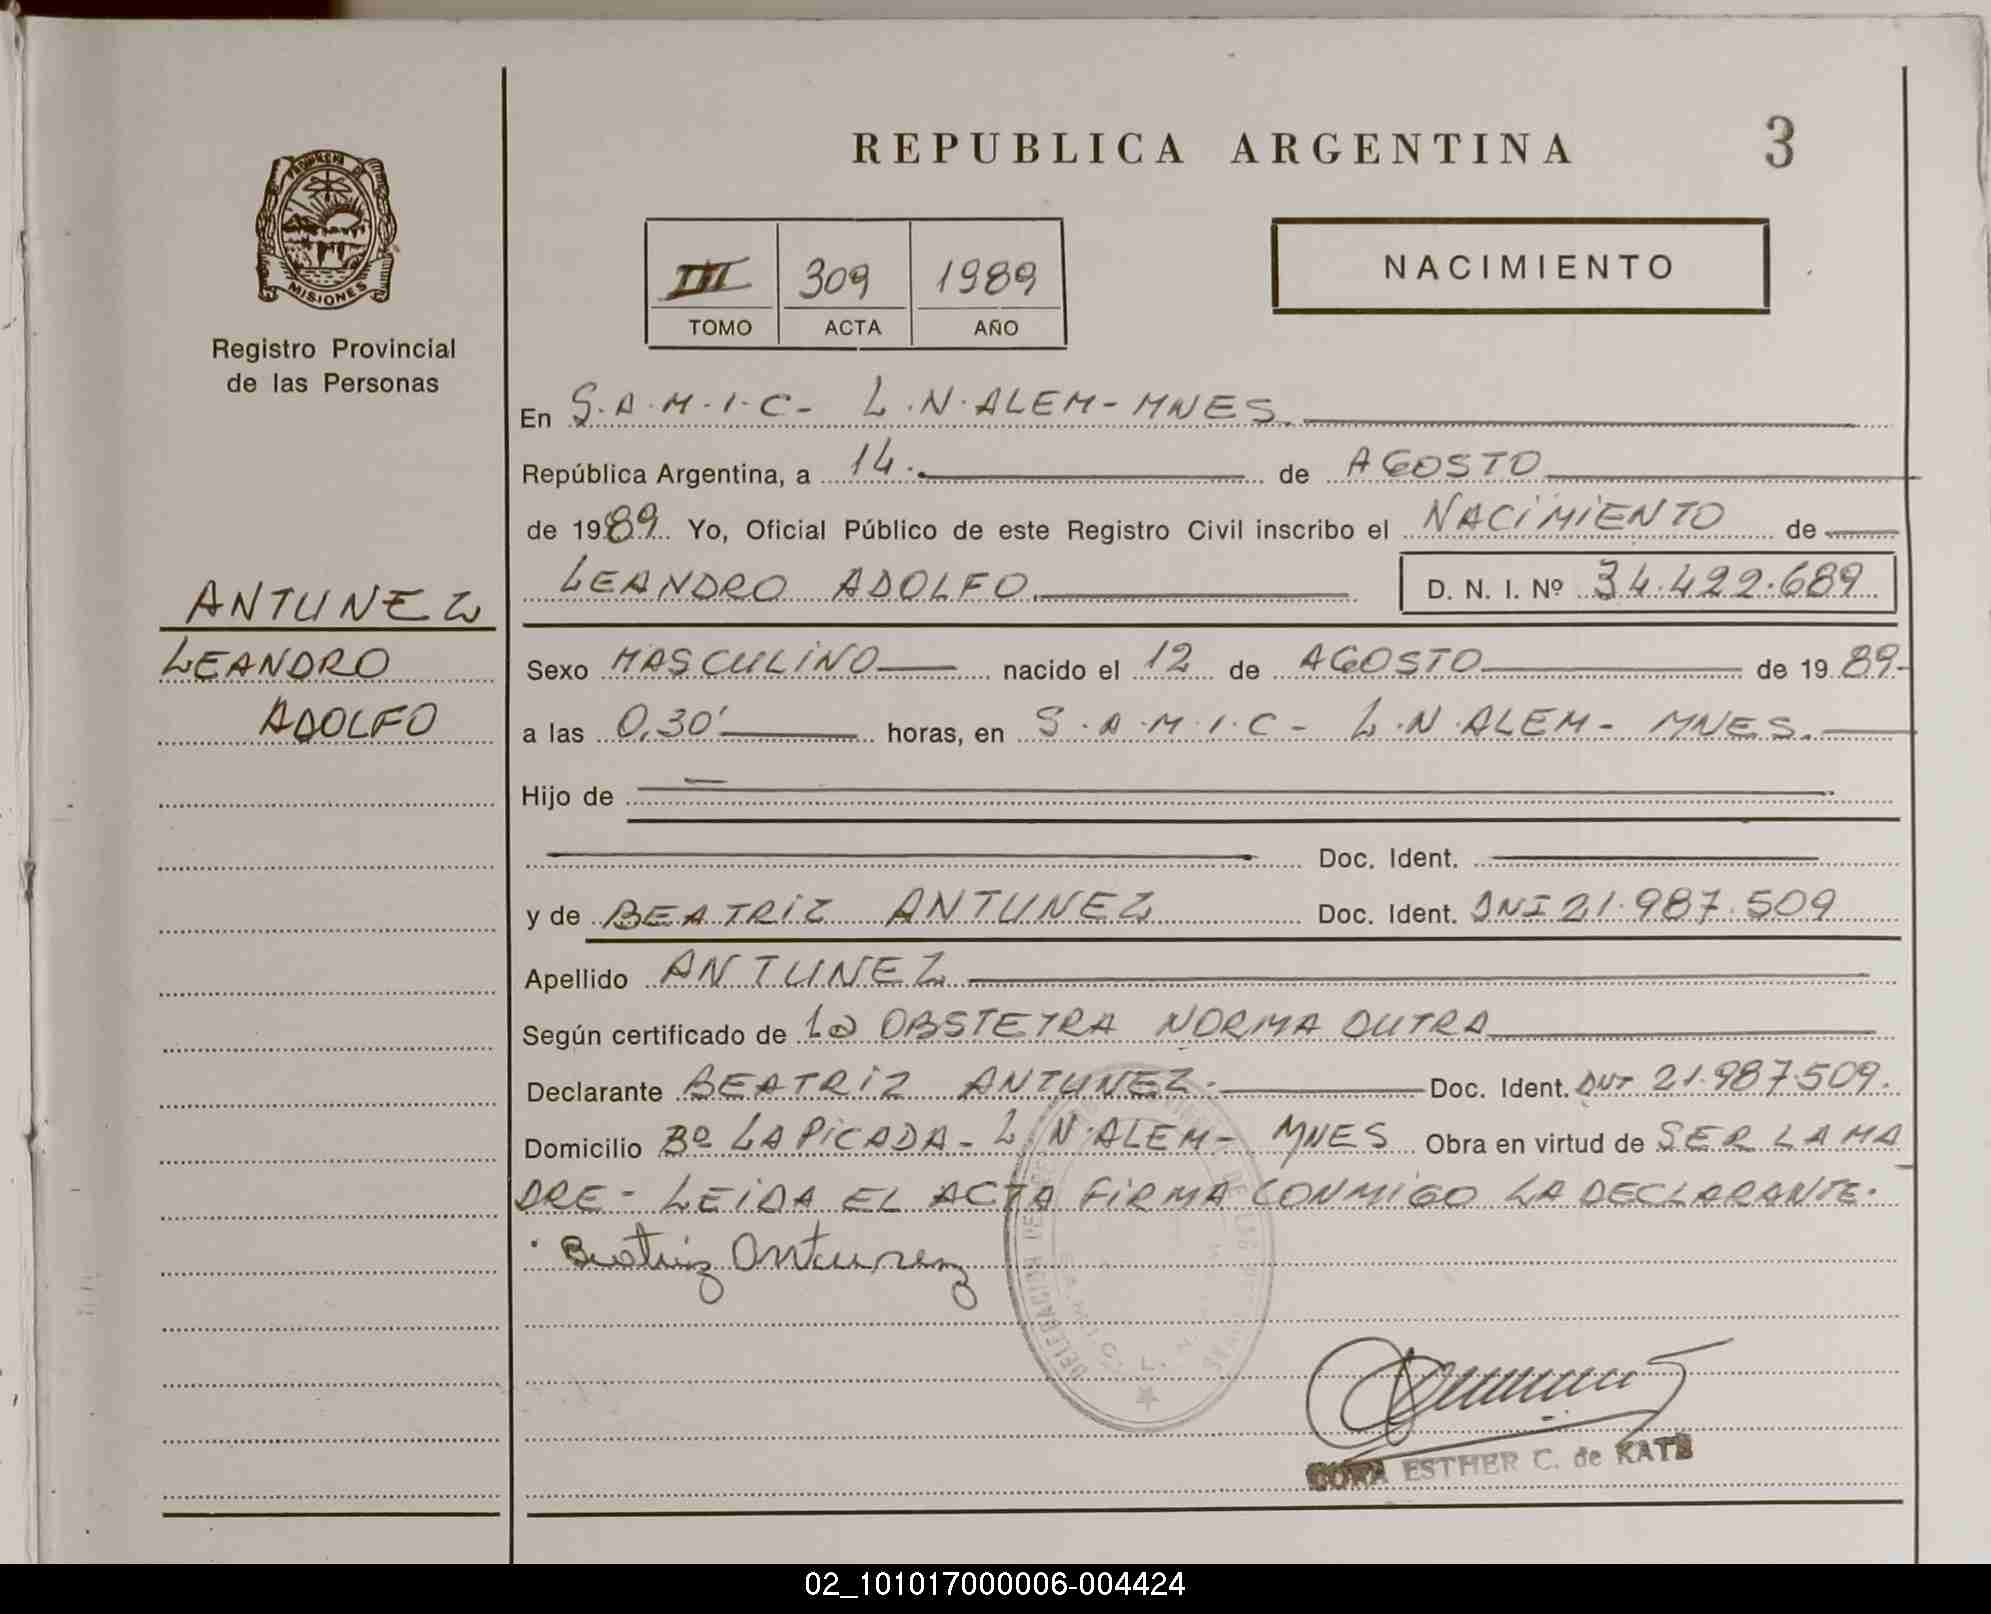 REPUBLICA ARGENTINA
3
PROVINCIA DE
MISIONES
Registro Provincial
de las Personas
III 309 1989
TOMO ACTA AÑO
NACIMIENTO
En S.A.M.I.C- L.N.ALEM-MNES.
República Argentina, a 14. de AGOSTO
de 1989. Yo, Oficial Público de este Registro Civil inscribo el NACIMIENTO de
LEANDRO ADOLFO D. N. I. Nº 34.422.689
ANTUNEZ
LEANDRO
ADOLFO
Sexo MASCULINO nacido el 12 de AGOSTO de 1989-
a las 0,30' horas, en S.A.M.I.C- L.N.ALEM- MNES.
Hijo de
Doc. Ident.
y de BEATRIZ ANTUNEZ Doc. Ident. DNI 21.987.509
Apellido ANTUNEZ
Según certificado de La OBSTETRA NORMA DUTRA
Declarante BEATRIZ ANTUNEZ. Doc. Ident. DNI 21.987.509.
Domicilio Bº LA PICADA- L.N.ALEM- MNES Obra en virtud de SER LA MA
DRE- LEIDA EL ACTA FIRMA CONMIGO LA DECLARANTE.
Beatriz Antunez
DELEGACION DE LAS
S.A.M.I.C. L. N.
ESTHER C. de KATZ
02_101017000006-004424